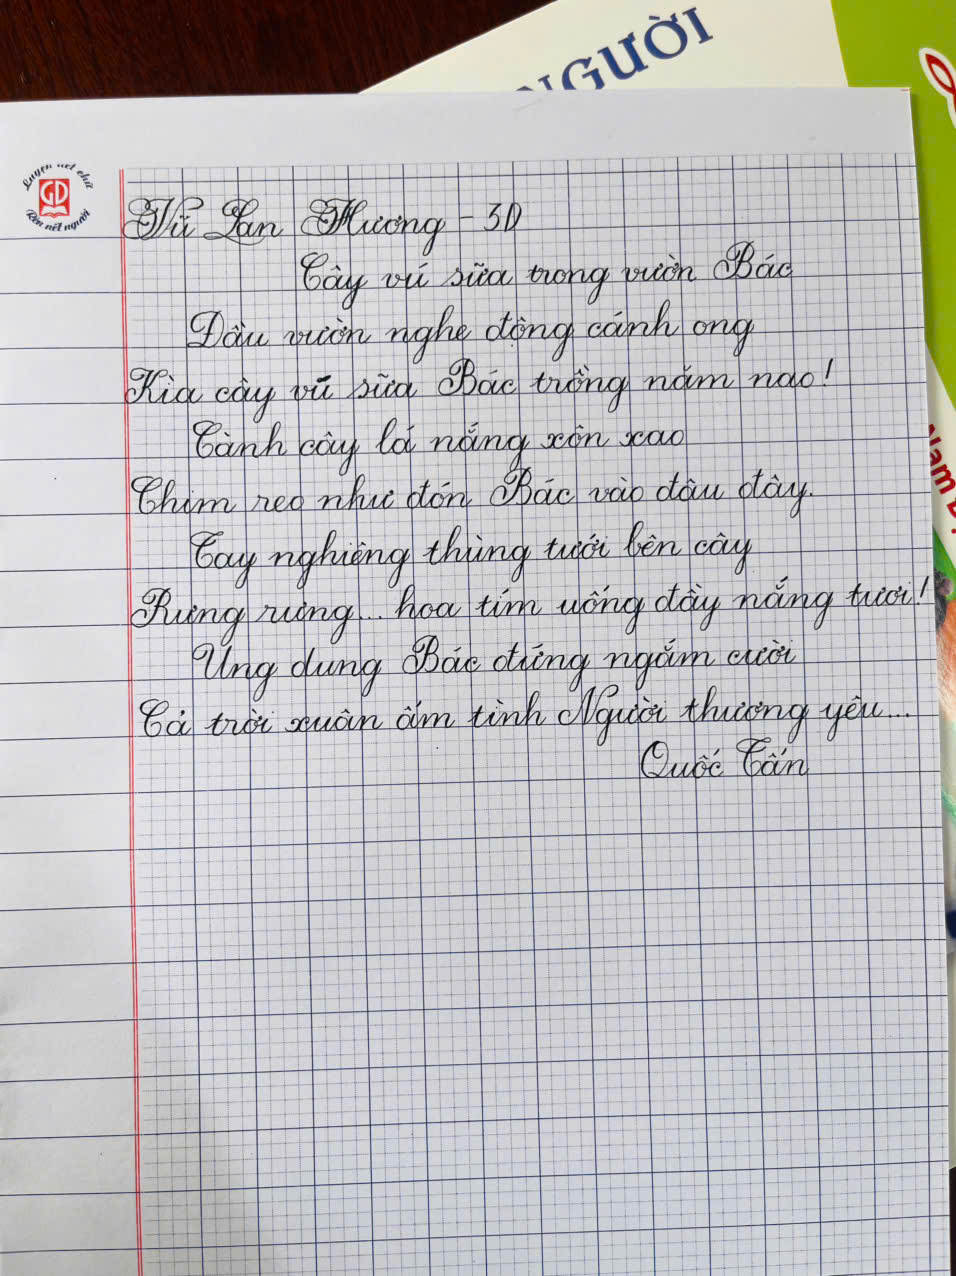 NGƯỜI
Luyện nét chữ
GD
Rèn nết người
Vũ Lan Hương - 3D
Cây vú sữa trong vườn Bác
Dầu vườn nghe động cánh ong
Kìa cây vũ sữa Bác trồng năm nao!
Cành cây lá nắng xôn xao
Chim reo như đón Bác vào đâu đây.
Tay nghiêng thùng tưới bên cây
Rưng rưng... hoa tím uống đầy nắng tươi!
Ung dung Bác đứng ngắm cười
Cả trời xuân ấm tình Người thương yêu...
Quốc Tấn